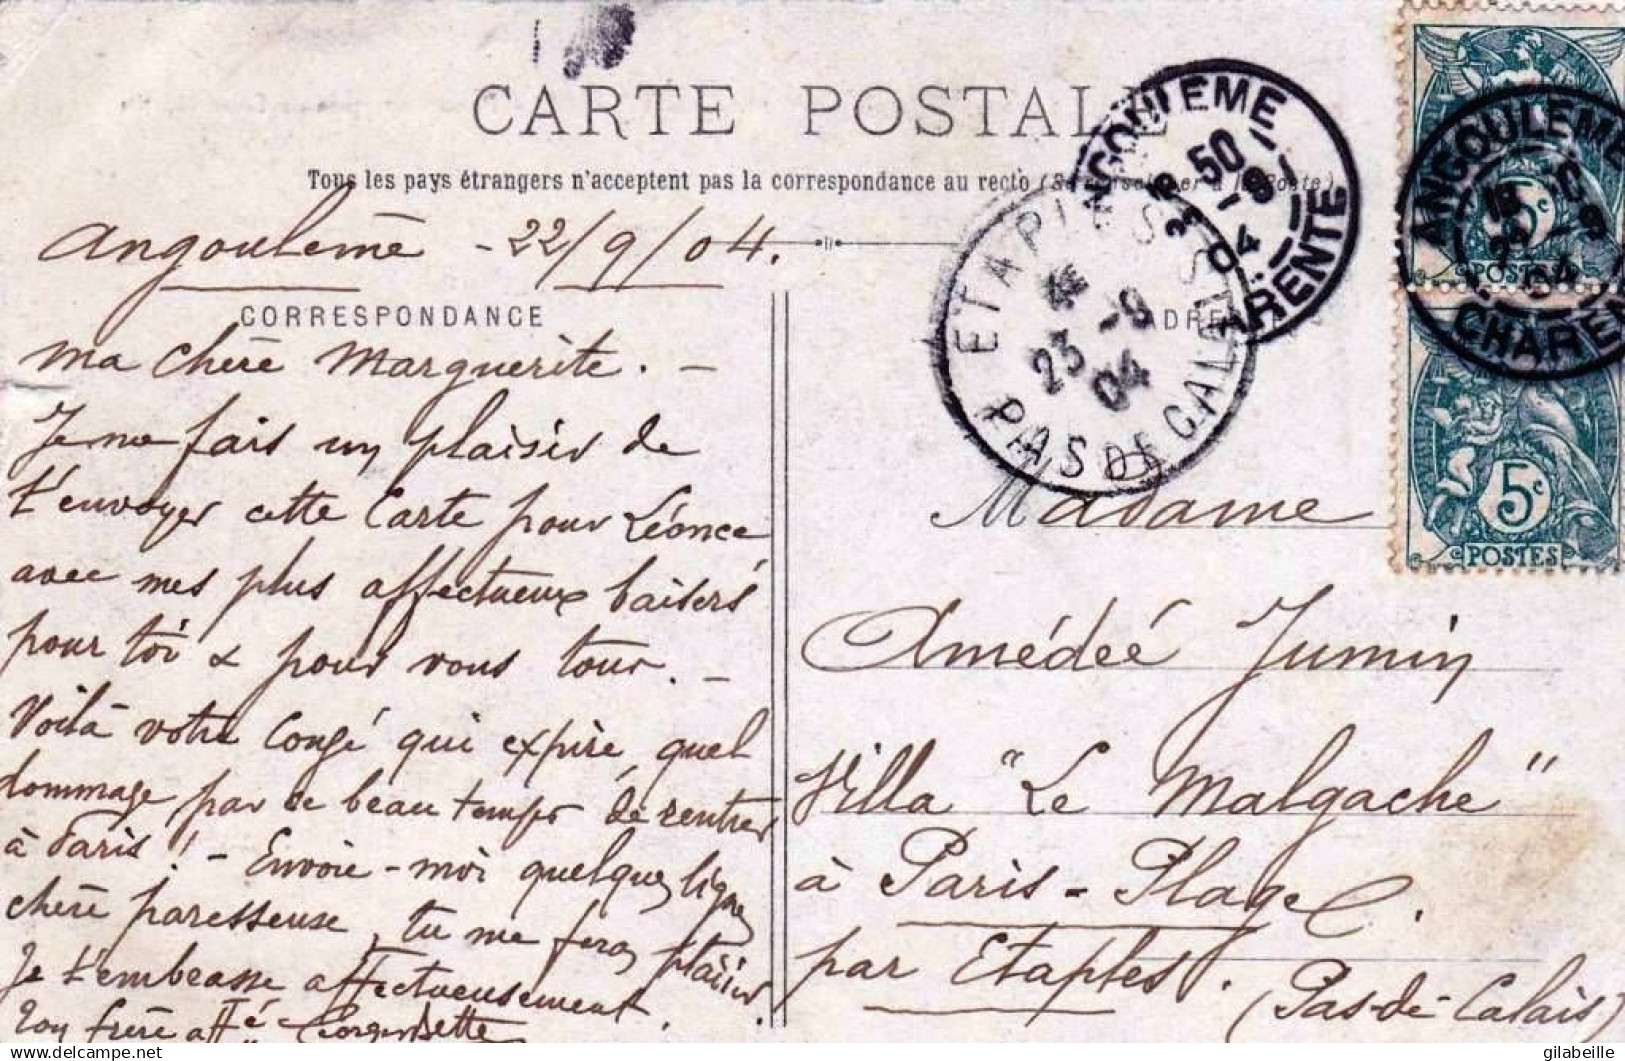 CARTE POSTALE
Tous les pays étrangers n'acceptent pas la correspondance au recto (Se renseigner à la Poste)
Angoulême - 22/9/04.
CORRESPONDANCE
Ma chère Marguerite. -
Je me fais un plaisir de
t'envoyer cette Carte pour Léonce
avec mes plus affectueux baisers
pour toi & pour vous tous. -
Voilà votre Congé qui expire, quel
dommage par ce beau temps de rentrer
à Paris! - Envoie-moi quelques lignes
chère paresseuse, tu me feras plaisir.
Je t'embrasse affectueusement.
Ton frère aff.é
ADRESSE
Madame
Amédée Jumin
Villa "Le Malgache"
à Paris-Plage.
par Etaples.
(Pas-de-Calais)
ANGOULEME
50
23 - 9
04
CHARENTE
ETAPLES
4
23 - 9
04
PAS DE CALAIS
ANGOULEME
CHARENTE
5c
POSTES
5c
POSTES
gilabeille